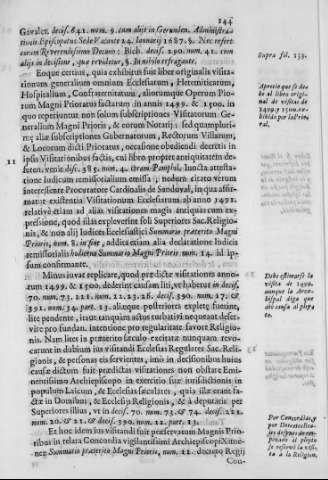 244
Gonçlez. decis. 641. num. 9. cum alijs in Gerunden. Administra-
tionis Episcopatus Sede Vacante 24. Ianuarij 1687. §. Nec refert
coram Reverendissimo Decano; Bich. decis. 290. num. 41. cum
alijs in decisione, que revoletur, §. In nihilo refragante.
Eoque certius, quia exhibiti sunt liber originalis visita-
tionum generalium omnium Ecclesiarum, Hermiticarum,
Hospitalium, Confraternitatum, aliorumque Operum Pio-
rum Magni Prioratus factarum in annis 1499. & 1500. in
quo reperiuntur non solum subscriptiones Visitatorum Ge-
neralium Magni Prioris, & eorum Notarij; sed quamplu-
ries aliæ subscriptiones Gubernatorum, Rectorum Villarum,
& Locorum dicti Prioratus, occasione obediendi decretis in
ipsis Visitationibus factis, cui libro propter antiquitatem de-
fertur, veluti decis. 385. num. 44. Coram Pamphil. Iuncta attesta-
tione Iudicum remissorialium emissa; nedum citato verum
interessente Procuratore Cardinalis de Sandoval, in qua affir-
matur existentia Visitationum Ecclesiarum ab anno 1491.
relativè etiam ad alias visitationes magis antiquas cum ex-
pressione, quod illas expleverint soli Superiores Sac. Religio-
nis, & non alij Iudices Ecclesiastici Summario præterito Magni
Prioris, num. 8. in fine, addita etiam alia declaratione Iudicis
remissorialis hodierno Summario Magni Prioris num. 14. id ip-
sum confirmante.
Minus iuvat replicare, quod prædictæ visitationes anno-
rum 1499. & 1500. dederint causam liti, vt habetur in decis.
70. num. 73. 221. num. 22. 23. 26. decis. 390. num. 17. &
391. num. 34. part. 13. aliæque posteriores expletæ fuerint,
lite pendente, fraus tanquam actus turbativi nequeant deser-
vire pro fundan. intentione pro regularitate favore Religio-
nis. Nam lites in præterito sæculo excitatæ nunquam revo-
carunt in dubium ius visitandi Ecclesias Regulares Sac. Reli-
gionis, & personas eis servientes, imò in decisionibus huius
causæ dictum fuit prædictas visitationes non obstare Emi-
nentissimo Archiepiscopo in exercitio suæ iurisdictionis in
populum Laicum, & Ecclesias sæculares, quia illæ erant fa-
ctæ in Domibus, & Ecclesijs Religionis, & à deputatis per
Superiores illius, vt in decis. 70. num. 73. & 74. decis. 221.
num. 20. & 21. & decis. 390. num. 22. part. 13.
Et hoc idem ius visitandi fuit præservatum Magnis Prio-
ribus in relata Concordia vigilantissimi Archiepiscopi Xime-
nez Summario præterito Magni Prioris, num. 22. decimo Regij
Con-
Supra fol. 239.
11
Debe estimarse la
visita de 1499.
aunque la Arzo-
bispal diga que
dió causa al pley-
to.
Por Concordias, y
por